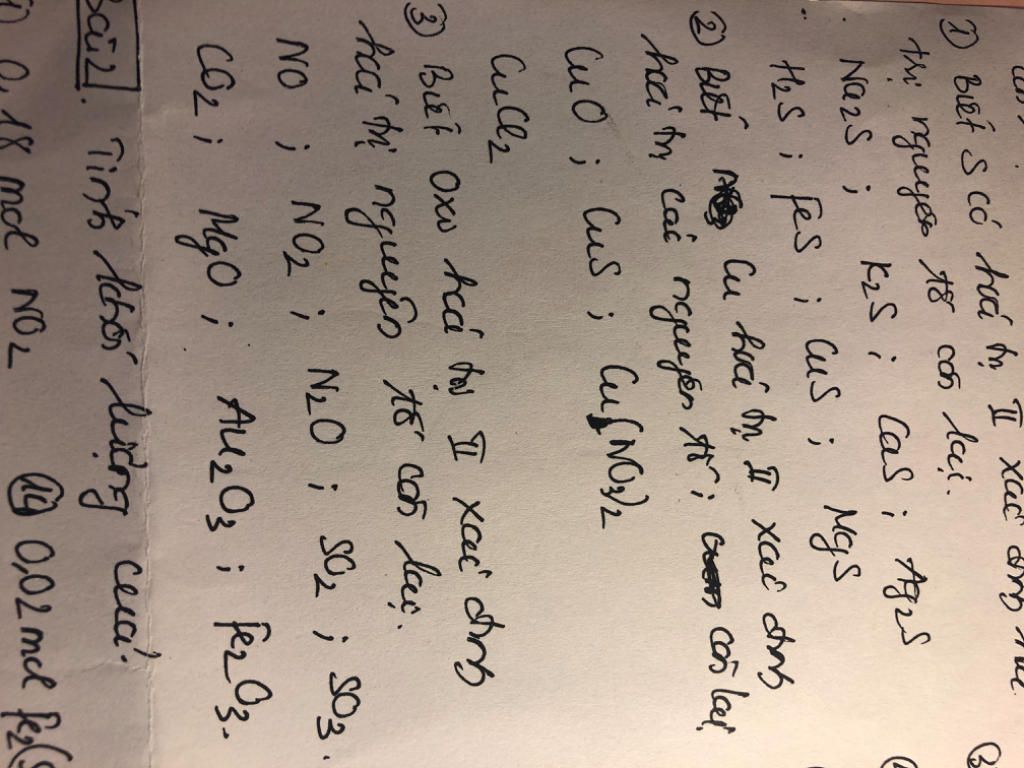 ① Biết S có hoá trị II xác định hoá
trị nguyên tố còn lại.
Na2S ; K2S ; CaS ; Ag2S
H2S ; FeS ; CuS ; MgS
② Biết Cu hoá trị II xác định
hoá trị các nguyên tố ; còn lại
CuO ; CuS ; Cu(NO3)2
CuCl2
③ Biết oxi hoá trị II xác định
hoá trị nguyên tố còn lại.
NO ; NO2 ; N2O ; SO2 ; SO3.
CO2 ; MgO ; Al2O3 ; Fe2O3.
Bài 2. Tính khối lượng của:
① 0,18 mol NO2 ⑭ 0,02 mol Fe2(S